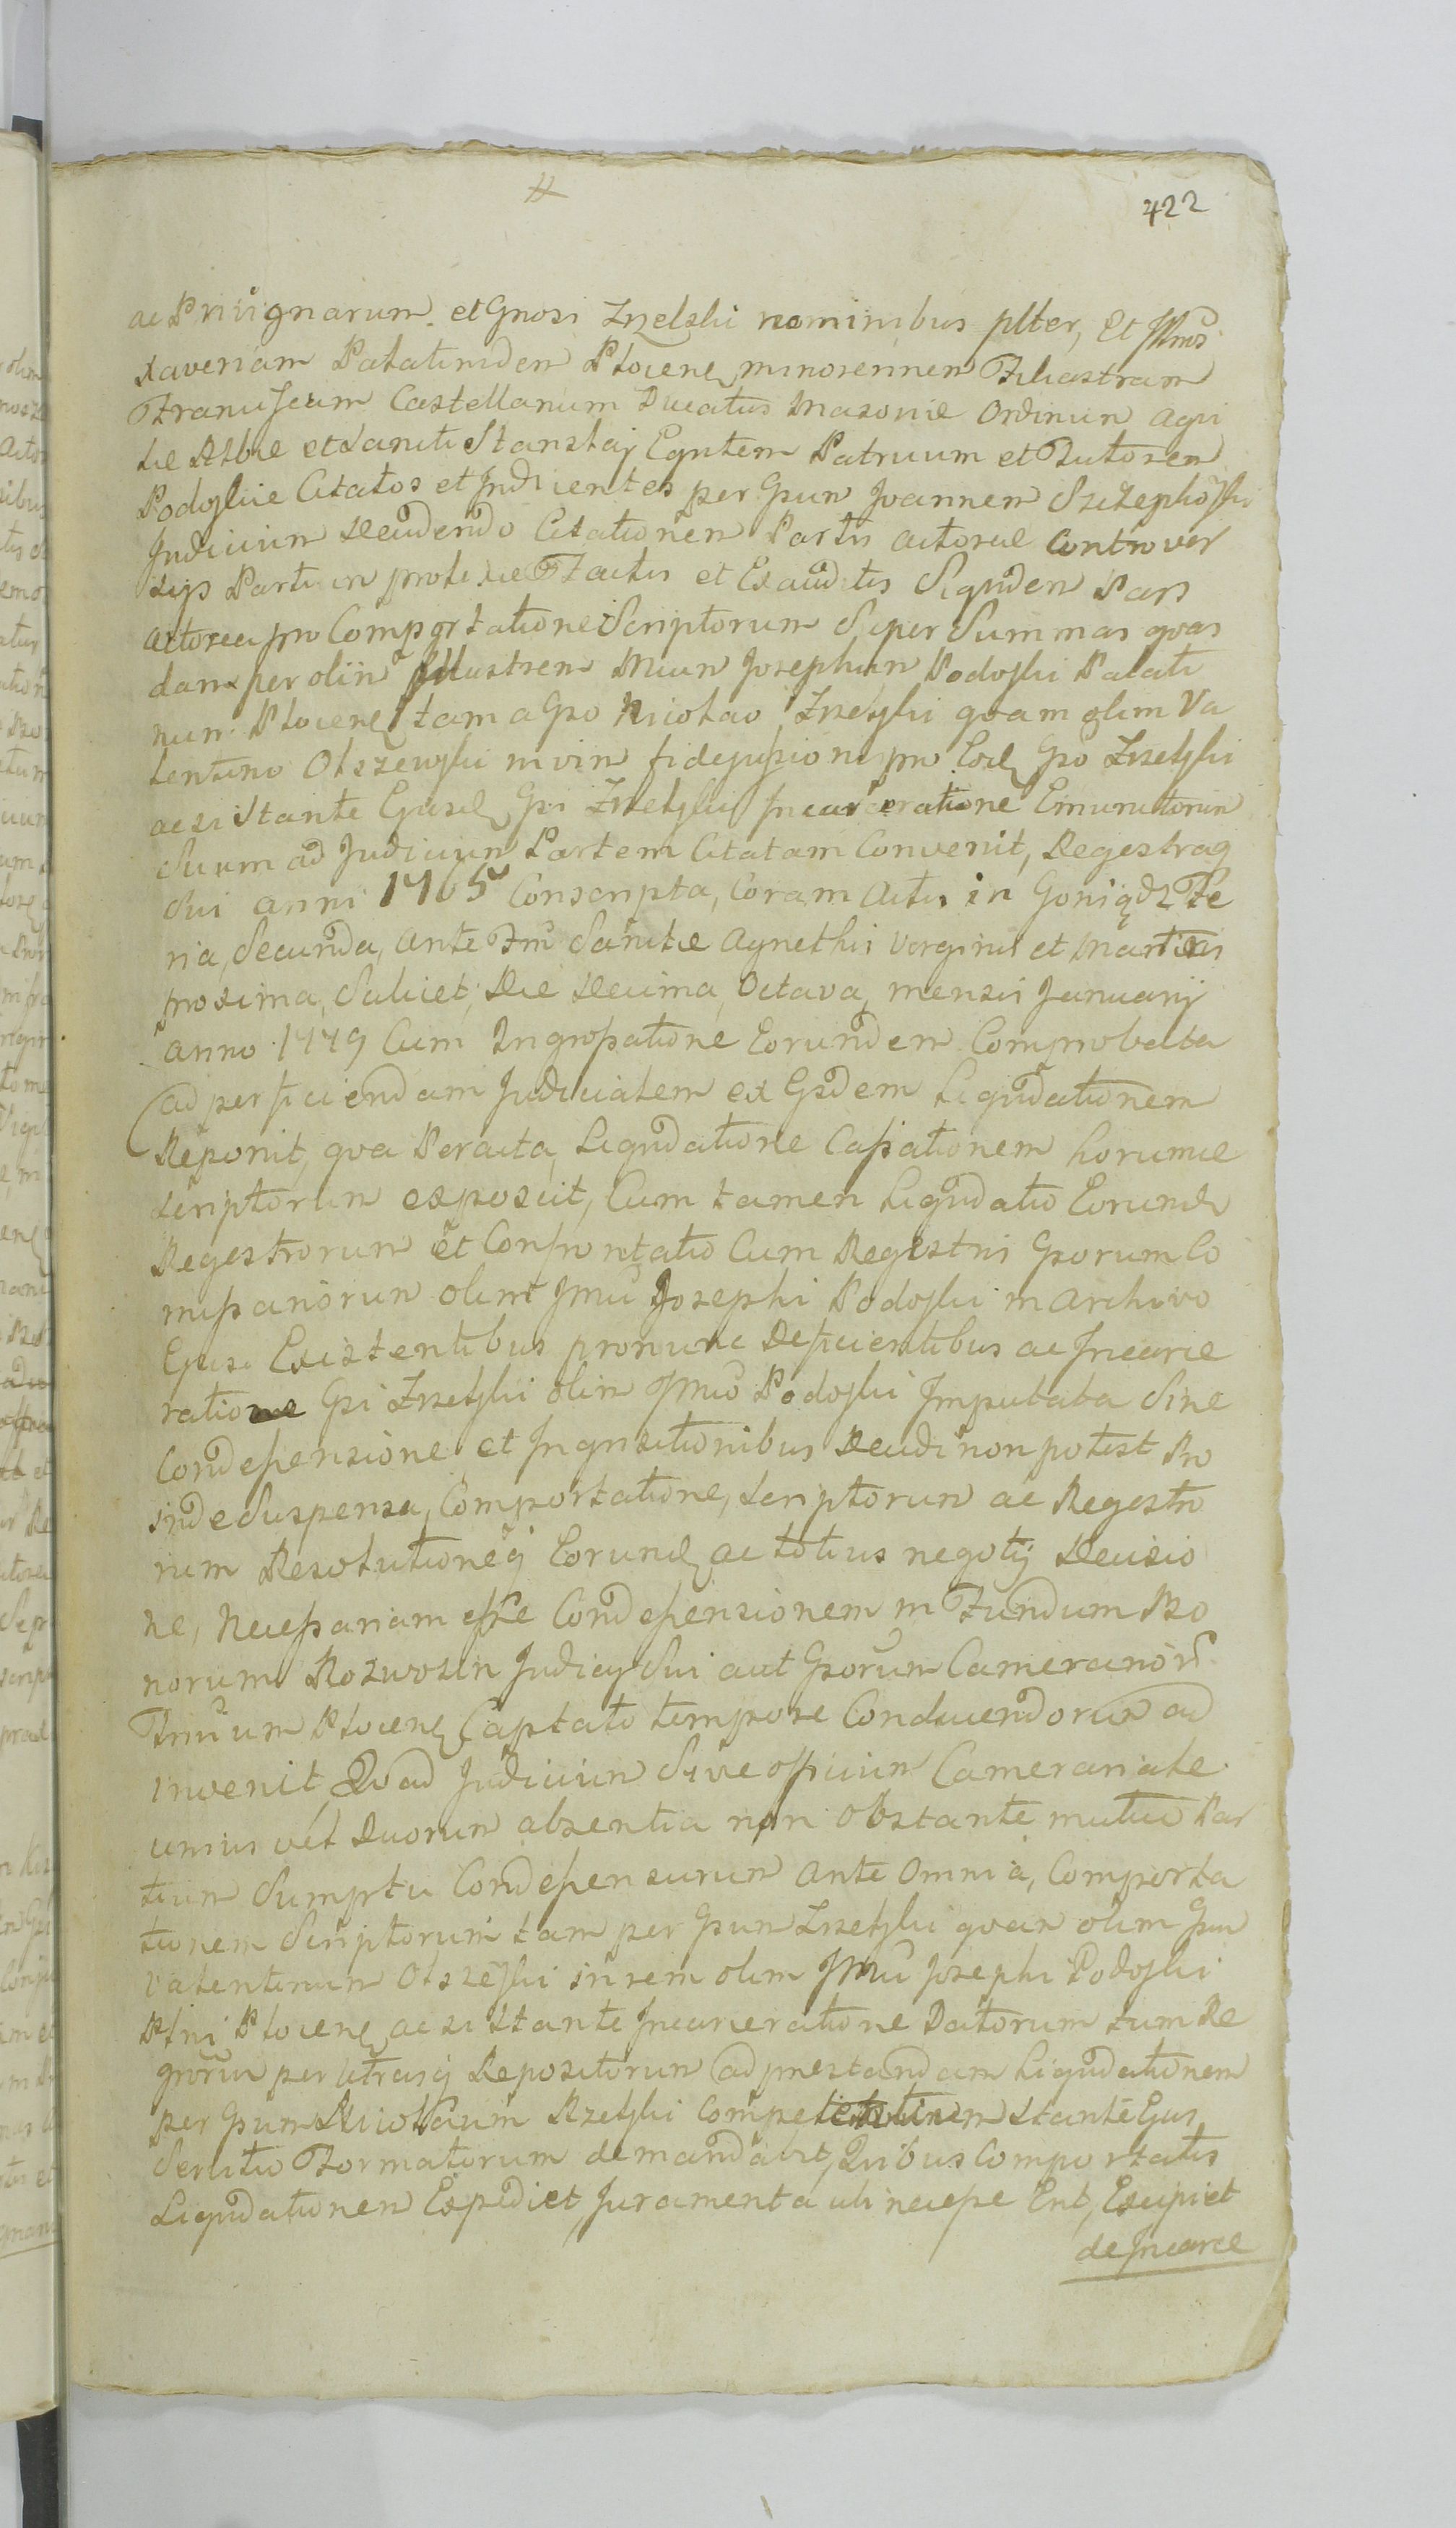 422
ac Privignarum et Gnosi Zrzelski nominibus plter, Et Jllmos
Xaveriam Palatiniden Plocens minorennem Filiastram
Franciscum Castellanum Ducatus Masovie Ordinun aqvi
lie Albe et Sancti Stanslaj Eqvitem Patruum et Tutorem
Podoskie Citatos et Judicientes per Gsun Joannem Szczepkoski
Judicium Decidendo Citationem Partis actoree Controver
sys Partiun protixie Factis et Exauditis Siqvidem Pars
actorea pro Comportatione Scriptorum Super Summas qvas
dam per olim Jllustrem Mcun Josephum Podoski Palati
num Plocens tam a Gso Nicolao Zrzelski qvam olim Va
lentino Olszewski in vim fidejussionis pro Eod Gso Zrzelski
ac si Stante Ejusd Gsi Zrzelski Jncarceratione Emunitorum
Suum ad Judicium Partem Citatam Convenit, Regestraq
Sui anni 1765 Conscripta, Coram Actis in Goniądz Fe
ria, Secunda, ante Ftm Sancte Agnethis Virginis et Martiris
proxima, Scilicet, Die Decima Octava, mensis Januarij
anno 1779 Cum Ingrossatione Eorundem Comprobata
ad perficiendam Judicialem ex Gsdem Liqvidationem
Reponit, qva Peracta, Liqvidatione Cassationem horumce
Scriptorum exposcit, Cum tamen Liqvidatio Eorund
Regestrorum et Confrontatio Cum Regestris Gsorum Co
missariorum olim Jmci Josephi Podoski in Archivo
Ejus Existentibus pronunc Deficientibus ac Jncarce
ratione Gsi Zrzelski olim Jmco Podoski Imputata Sine
Condescensione et Inqvisitionibus Decidi non potest Pro
inde Suspensa, Comportatione, Scriptorum ac Regestro
rum Resolutioneq Eorund ac totius negotij Decisio
ne, Necessariam esse Condescensionem in Fundum Bo
norum Rozwozin Judicij Sui aut Gsorum Camerarior
Trium Plocens Captato tempore Conducendorum ad
invenit, Qvod Judicium Sive officium Camerariale
unius vel Duorum absentia non Obstante mutuo Par
tium Sumptu Condescensurum ante Omnia, Comporta
tionem Scriptorum tam per Gsun Zrzelski qvam olim Gsun
Valentinum Olszeski in rem olim Jmci Josephi Podoski
Pltni Plocens ac si Stante Jncarceratione Datorum tum Re
grorum per utrasq Repositorum ad prestandam Liqvidationem
per Gsum Nicolaum Rzelski Competentium Stante Ejus
Servitio Formatorum demandabit, Qvibus Comportatis
Liqvidationem Expediet, Juramenta ubi necesse Erit, Excipiet
de Jncarce